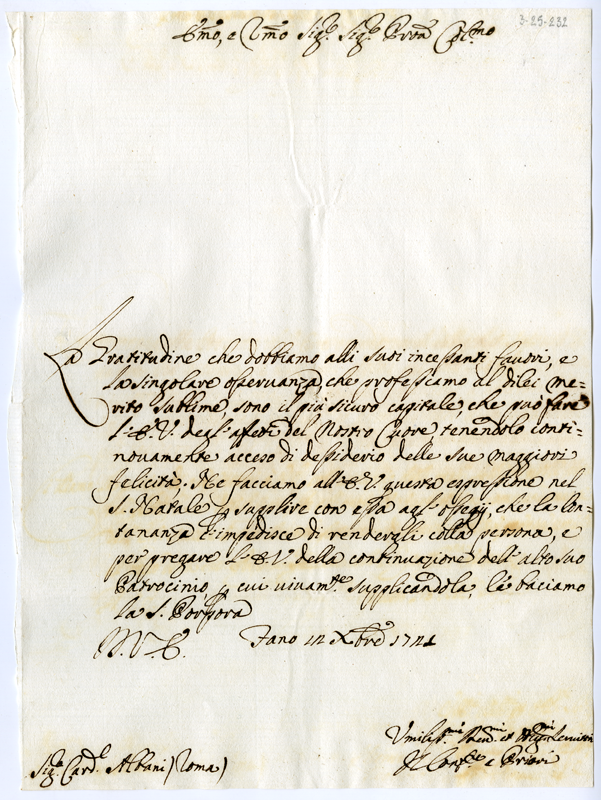 3-25-232
Em̃o, e Rm̃o Sig.r Sig.r Prõn Col.mo
La Gratitudine che dobbiamo alli suoi incessanti favori, e
la singolare osservanza che professiamo al dilei me=
rito sublime, sono il più sicuro capitale, che può fare
l'E.V. degl'affetti del Nostro Cuore tenendolo conti-
nouamente acceso di dessiderio delle sue maggiori
felicità; Ne facciamo all'E.V. questa espressione nel
S. Natale p supplire con essa agl'ossequij, che la lon=
tananza c'impedisce di rendergli colla persona, e
per pregare l'E.V. della continuazione dell'alto suo
Patrocinio, p cui vivam.te supplicandola, le baciamo
la S. Porpora
D.V.E. Fano 12 Xbre 1721
Umiliss.mi Devd.mi et Servitori
Il Conf.re e Priori
Sig.r Card.l Albani (Roma)